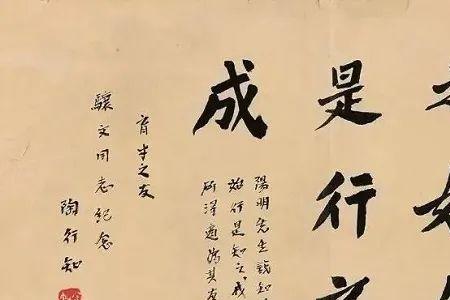 是行之
成
陽明先生說知
始行是知之成
所得適為其
育才之友
驥文同志紀念
陶行知